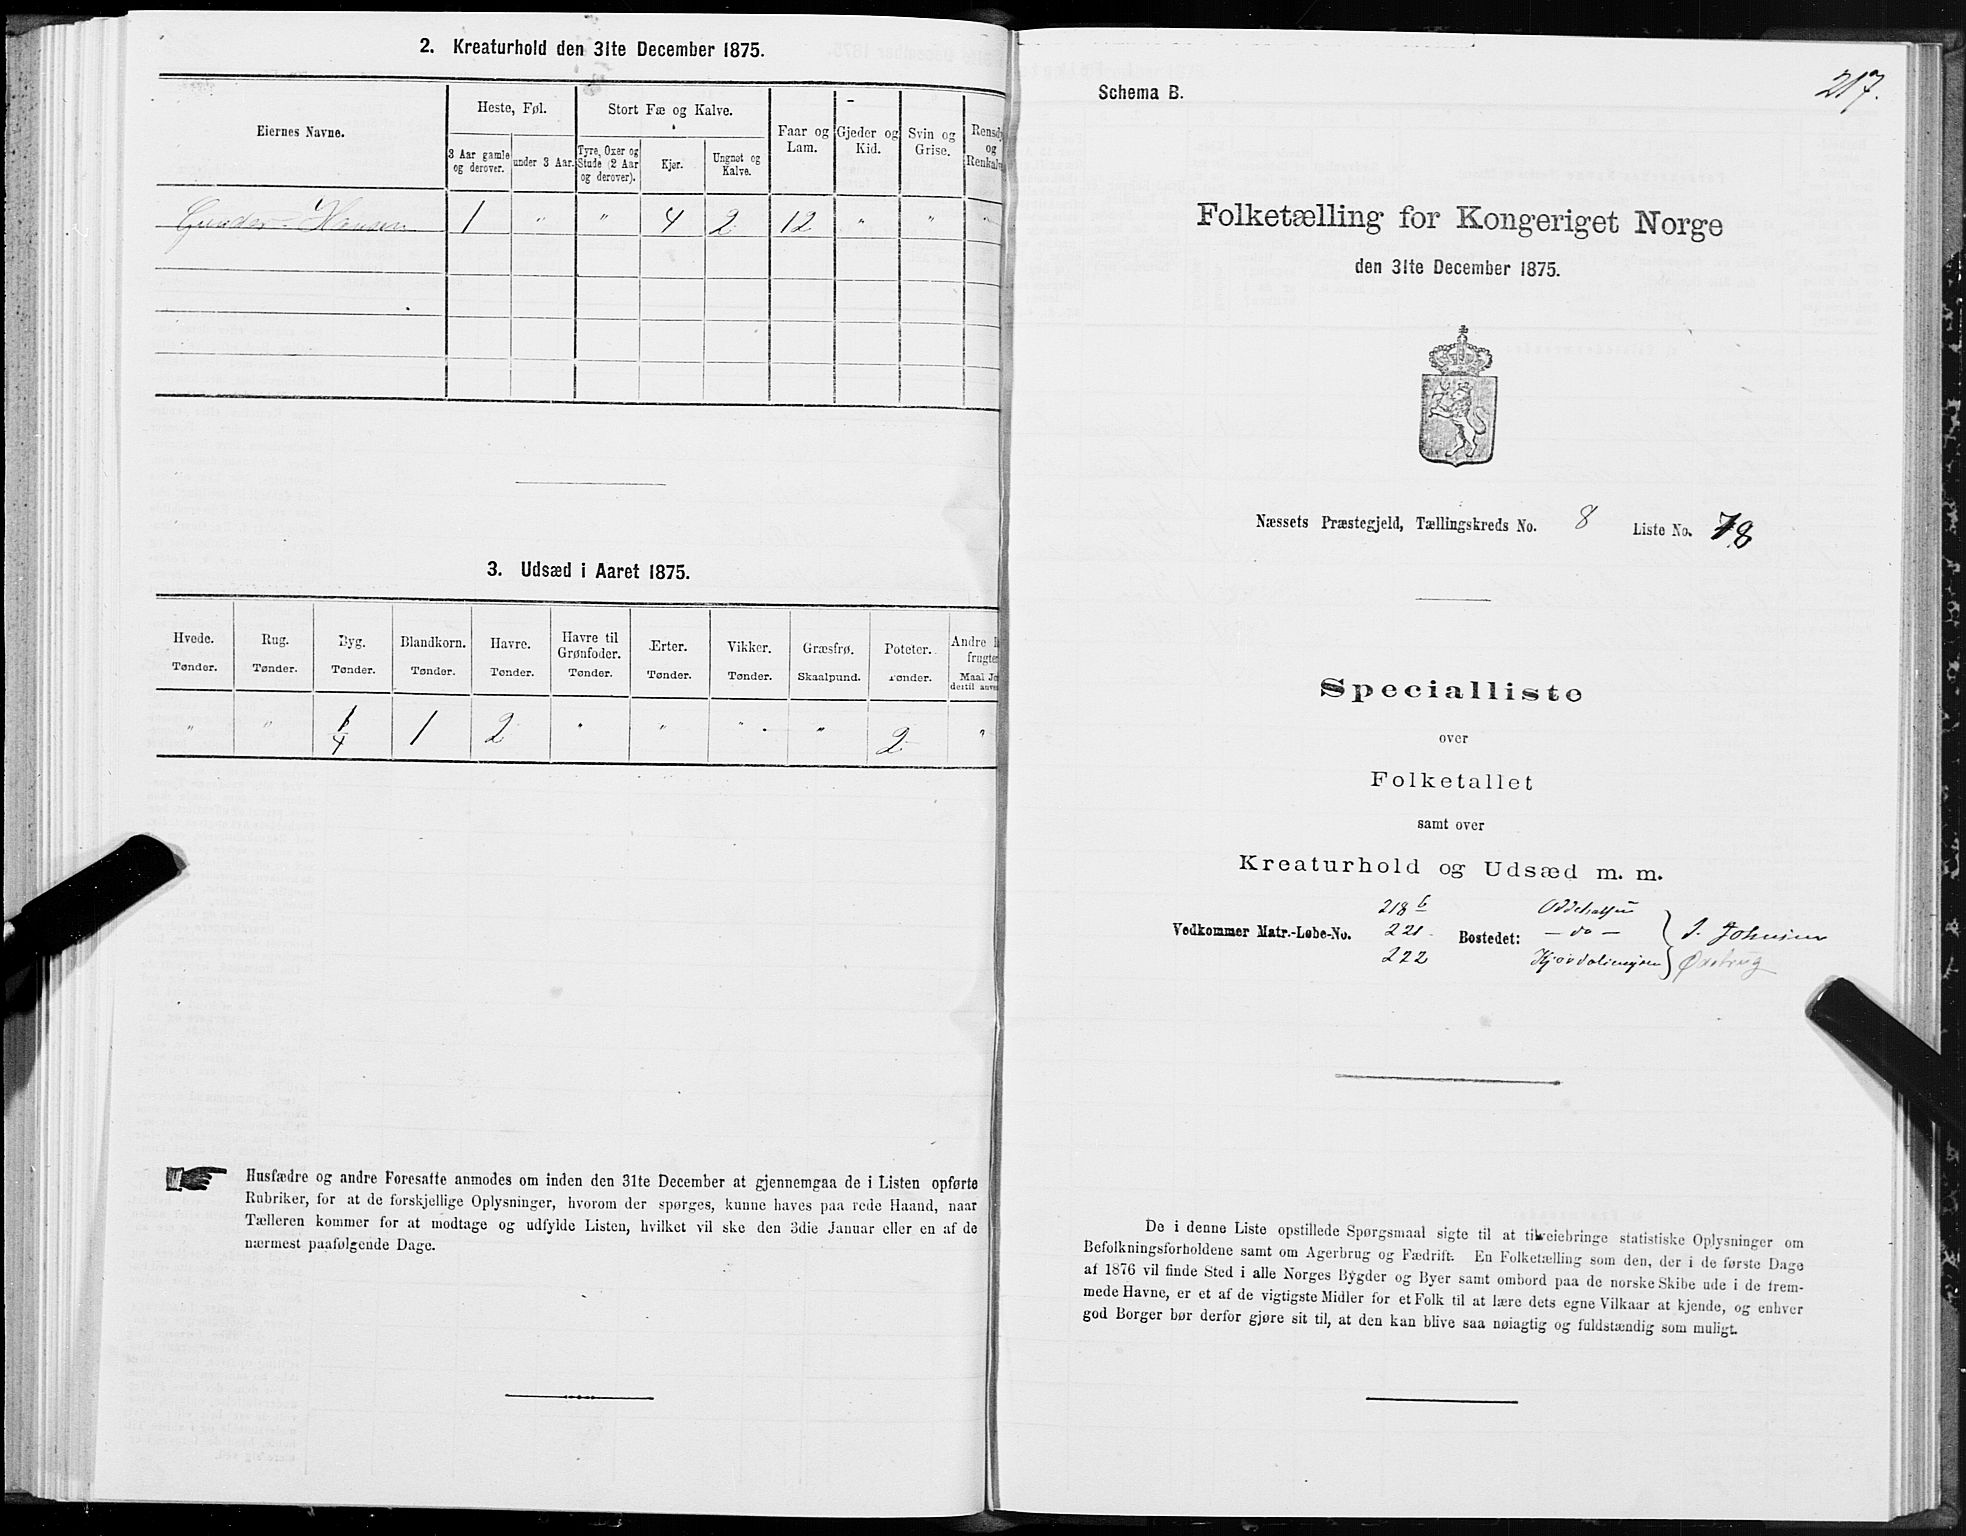 2. Kreaturhold den 31te December 1875.
Eiernes Navne.
Heste, Føl.
Stort Fæ og Kalve.
Faar og Lam.
Gjeder og Kid.
Svin og Grise.
Rensdy
og
Renkalve
3 Aar gamle og derover.
under 3 Aar.
Tyre, Oxer og Stude (2 Aar og derover).
Kjør.
Ungnøt og Kalve.
Gunder Hansen 1 " " 4 2 12 " " "
3. Udsæd i Aaret 1875.
Hvede. Rug. Byg. Blandkorn. Havre. Havre til Grønfoder. Ærter. Vikker. Græsfrø. Poteter. Andre
frugter
Tønder. Tønder. Tønder. Tønder. Tønder. Tønder. Tønder. Tønder. Skaalpund. Tønder. Maal
dertil
" " 1/4 1 2 " " " " 2 "
Husfædre og andre Foresatte anmodes om inden den 31te December at gjennemgaa de i Listen opførte
Rubriker, for at de forskjellige Oplysninger, hvorom der spørges, kunne haves paa rede Haand, naar
Tælleren kommer for at modtage og udfylde Listen, hvilket vil ske den 3die Januar eller en af de
nærmest paafølgende Dage.
217.
Schema B.
Folketælling for Kongeriget Norge
den 31te December 1875.
Næssets Præstegjeld, Tællingskreds No. 8 Liste No. 18
Specialliste
over
Folketallet
samt over
Kreaturhold og Udsæd m. m.
218 b
Vedkommer Matr.-Løbe-No. 221 Bostedet: — do — J. Johnsen
222
De i denne Liste opstillede Spørgsmaal sigte til at tilveiebringe statistiske Oplysninger om
Befolkningsforholdene samt om Agerbrug og Fædrift. En Folketælling som den, der i de første Dage
af 1876 vil finde Sted i alle Norges Bygder og Byer samt ombord paa de norske Skibe ude i de frem-
mede Havne, er et af de vigtigste Midler for et Folk til at lære dets egne Vilkaar at kjende, og enhver
god Borger bør derfor gjøre sit til, at den kan blive saa nøiagtig og fuldstændig som muligt.